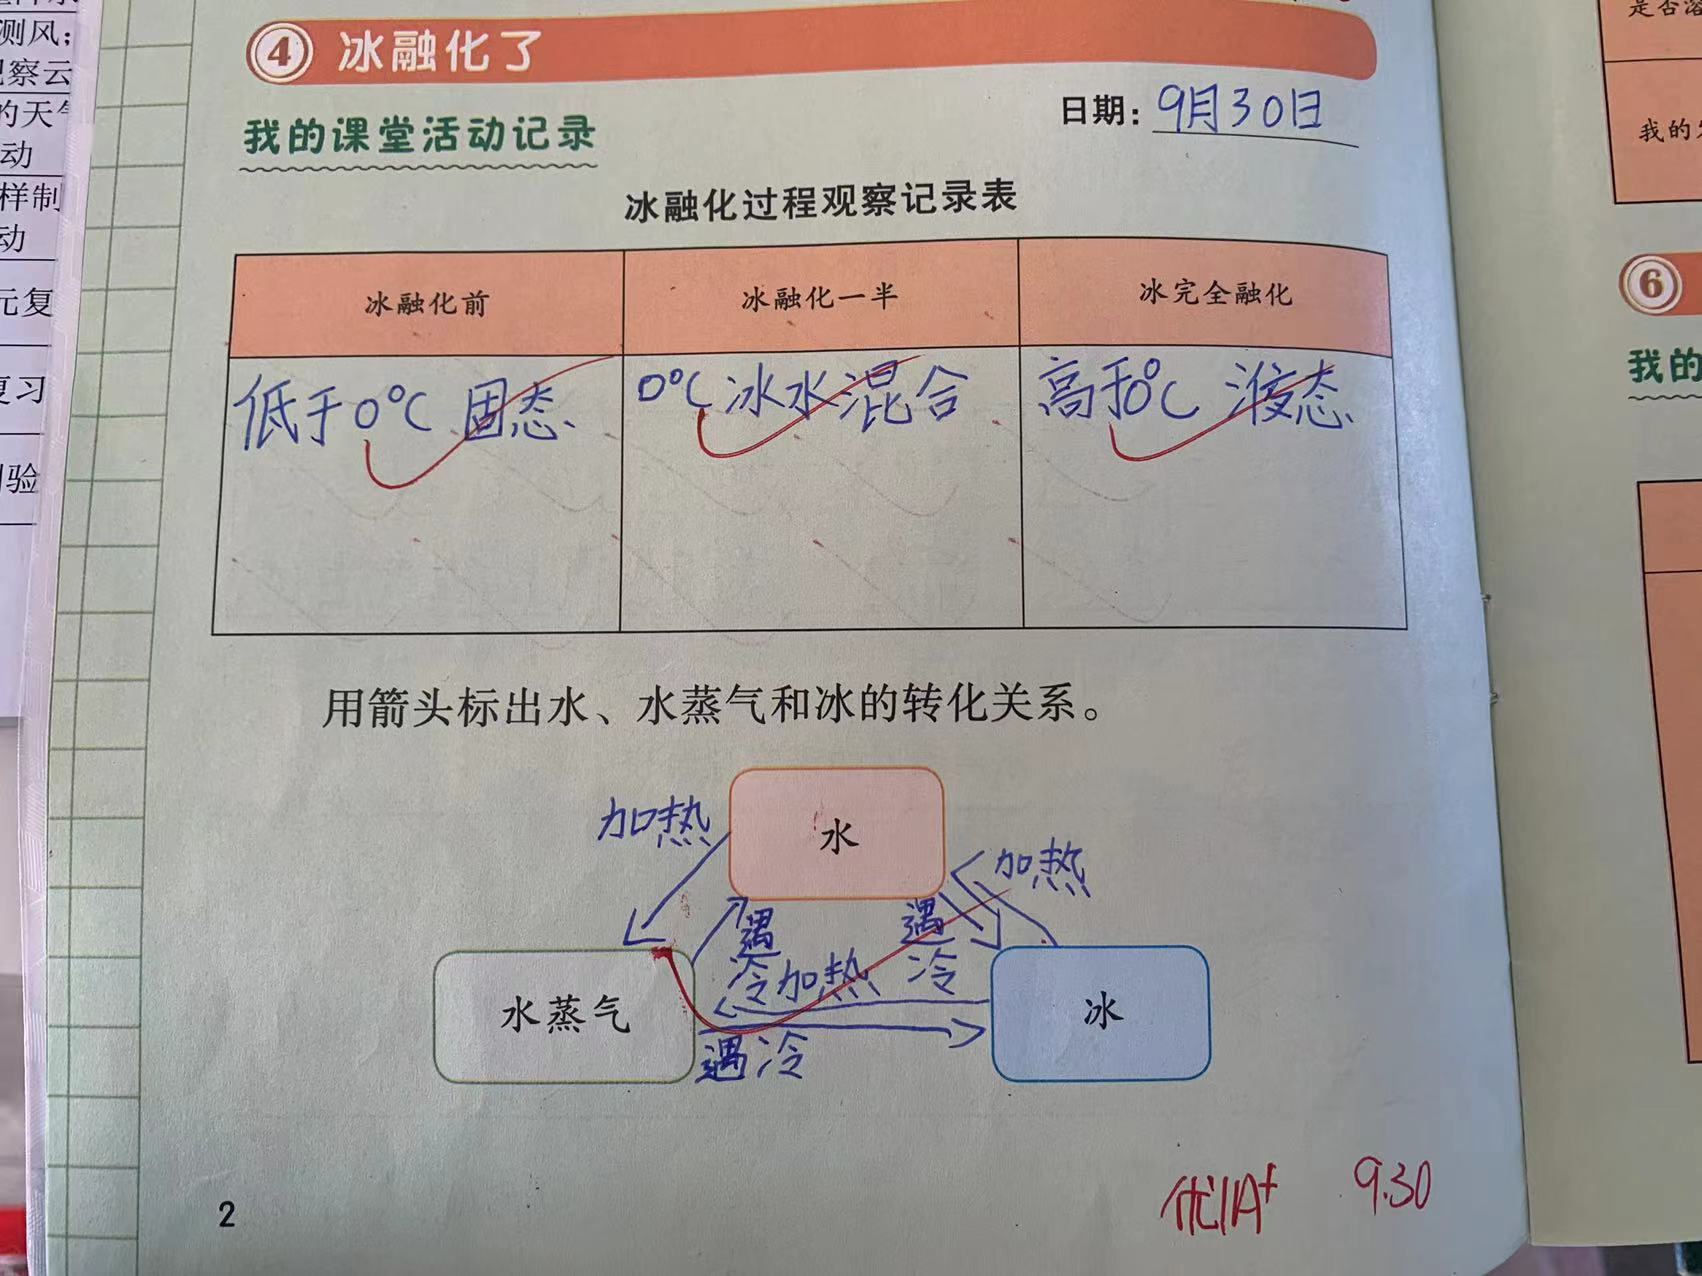 测风；
察云
的天气
动
样制
动
元复
复习
验
④ 冰融化了
日期：9月30日
我的课堂活动记录
冰融化过程观察记录表
冰融化前 冰融化一半 冰完全融化
低于0℃ 固态 0℃ 冰水混合 高于0℃ 液态
用箭头标出水、水蒸气和冰的转化关系。
加热 水 加热
遇冷 遇冷
加热
水蒸气 冰
遇冷
优A+ 9.30
2
是否溶
我的
⑥
我的